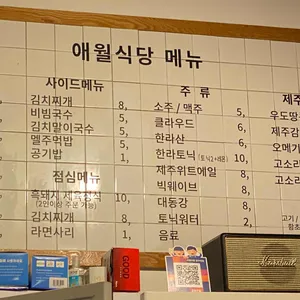 애월식당 메뉴
사이드메뉴
김치찌개 8,
비빔국수 5,
김치말이국수 5,
멜주먹밥 5,
공기밥 1,
점심메뉴
흑돼지 제육정식 10,
(2인이상 주문 가능)
김치찌개 8,
라면사리 1,
주 류
소주 / 맥주 5,
클라우드 6,
한라산 5,
한라토닉 (토닉+레몬) 10,
제주위트에일 8,
빅웨이브 8,
대동강 8,
토닉워터 2,
음료 2,
제주
우도땅
제주감
오메기
고소리
고소
고기
GOOD
Marshall